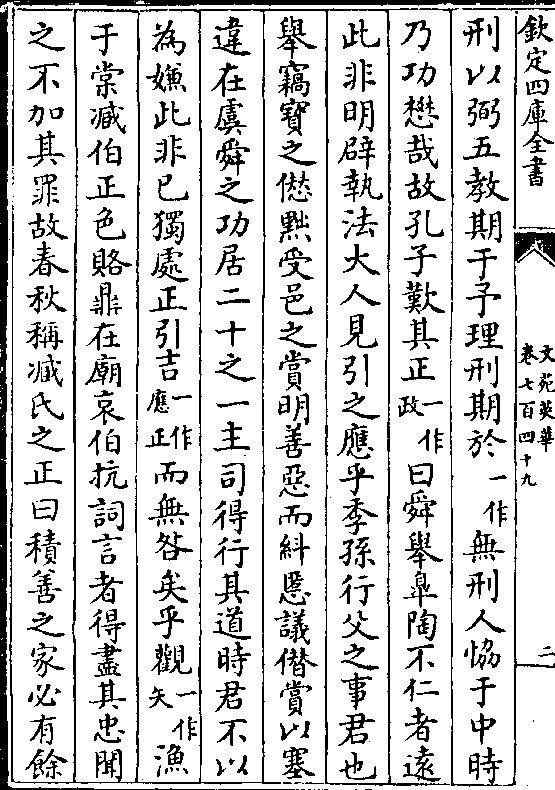 欽定四庫全書
文苑英華
卷七百四十九
二
刑以弼五教期于予理刑期於一作無刑人恊于中時
乃功懋哉故孔子歎其正一作政曰舜舉臯陶不仁者遠
此非明辟執法大人見引之應乎季孫行父之事君也
舉竊寳之愆黜受邑之賞明善惡而糾慝議僣賞以塞
違在虞舜之功居二十之一主司得行其道時君不以
為嫌此非已獨處正引吉一作應正而無咎矣乎觀一作矢漁
于棠臧伯正色賂鼎在廟哀伯抗詞言者得盡其忠聞
之不加其罪故春秋稱臧氏之正曰積善之家必有餘